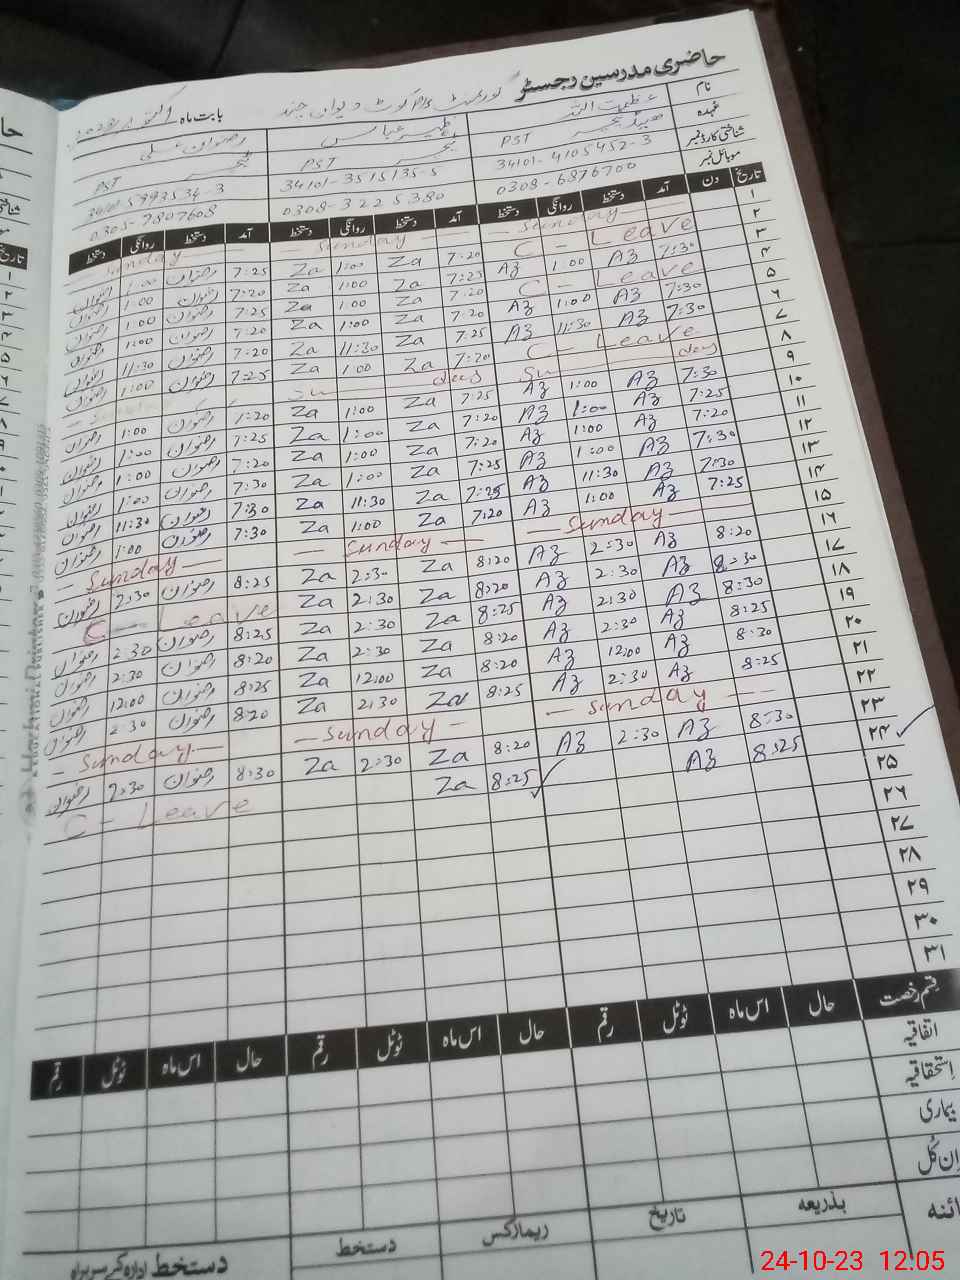 حاضری مدرسین رجسٹر
بابت ماہ اکتوبر
نام عظمت اللہ ظہیر عباس رضوان علی
عہدہ ہیڈ ٹیچر PST ٹیچر PST ٹیچر PST
شناختی کارڈ نمبر 34101-4105452-3 34101-3515135-5 34101-5993534-3
موبائل نمبر 0308-6876700 0308-3225380 0305-7807608
تاریخ دن آمد دستخط روانگی دستخط آمد دستخط روانگی دستخط آمد دستخط روانگی دستخط
۱ Sunday Sunday Sunday
۲ C-Leave 7:20 Za 1:00 Za 7:25 رضوان 1:00 رضوان
۳ 7:30 Az 1:00 Az 7:25 Za 1:00 Za 7:20 رضوان 1:00 رضوان
۴ C-Leave 7:20 Za 1:00 Za 7:25 رضوان 1:00 رضوان
۵ 7:30 Az 1:00 Az 7:20 Za 1:00 Za 7:20 رضوان 1:00 رضوان
۶ 7:30 Az 11:30 Az 7:25 Za 11:30 Za 7:20 رضوان 11:30 رضوان
۷ C-Leave 7:20 Za 1:00 Za 7:25 رضوان 1:00 رضوان
۸ Sunday Sunday Sunday
۹ 7:30 Az 1:00 Az 7:25 Za 1:00 Za 7:20 رضوان 1:00 رضوان
۱۰ 7:25 Az 1:00 Az 7:20 Za 1:00 Za 7:25 رضوان 1:00 رضوان
۱۱ 7:20 Az 1:00 Az 7:20 Za 1:00 Za 7:20 رضوان 1:00 رضوان
۱۲ 7:30 Az 1:00 Az 7:25 Za 1:00 Za 7:30 رضوان 1:00 رضوان
۱۳ 7:30 Az 11:30 Az 7:25 Za 11:30 Za 7:30 رضوان 11:30 رضوان
۱۴ 7:25 Az 1:00 Az 7:20 Za 1:00 Za 7:30 رضوان 1:00 رضوان
۱۵ Sunday Sunday Sunday
۱۶ 8:20 Az 2:30 Az 8:20 Za 2:30 Za 8:25 رضوان 2:30 رضوان
۱۷ 8:30 Az 2:30 Az 8:20 Za 2:30 Za C-Leave
۱۸ 8:30 Az 2:30 Az 8:25 Za 2:30 Za 8:25 رضوان 2:30 رضوان
۱۹ 8:25 Az 2:30 Az 8:20 Za 2:30 Za 8:20 رضوان 2:30 رضوان
۲۰ 8:30 Az 12:00 Az 8:20 Za 12:00 Za 8:25 رضوان 12:00 رضوان
۲۱ 8:25 Az 2:30 Az 8:25 Za 2:30 Za 8:20 رضوان 2:30 رضوان
۲۲ Sunday Sunday Sunday
۲۳ 8:30 Az 2:30 Az 8:20 Za 2:30 Za 8:30 رضوان 2:30 رضوان
۲۴ 8:25 Az 8:25 Za C-Leave
۲۵
۲۶
۲۷
۲۸
۲۹
۳۰
۳۱
قسم رخصت حال اس ماہ ٹوٹل رقم حال اس ماہ ٹوٹل رقم حال اس ماہ ٹوٹل رقم
اتفاقیہ
استحقاقیہ
بیماری
ان کُل
بذریعہ تاریخ ریمارکس دستخط دستخط ادارہ کے سربراہ
24-10-23 12:05